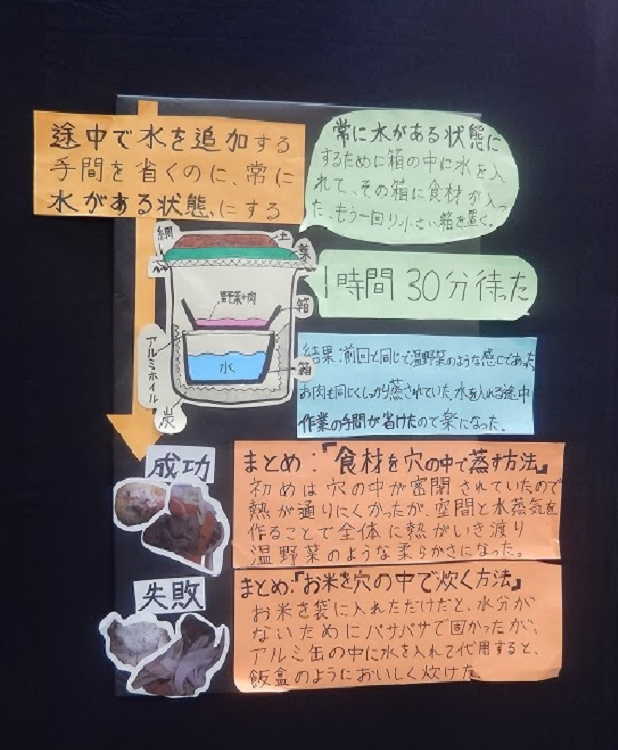 途中で水を追加する
手間を省くのに、常に
水がある状態、にする
常に水がある状態に
するために箱の中に水を入
れて、その箱に食材が入っ
た、もう一回り小さい箱を置く。
網
土
葉
野菜+肉
箱
水
箱
アルミホイル
炭
1時間30分待った
結果:前回と同じで温野菜のような感じであった。
お肉も同じくしっかり蒸されていた。水を入れる途中
作業の手間が省けたので楽になった。
成功
まとめ:『食材を穴の中で蒸す方法』
初めは穴の中が密閉されていたので
熱が通りにくかったが、空間と水蒸気を
作ることで全体に熱がいき渡り
温野菜のような柔らかさになった。
失敗
まとめ:『お米を穴の中で炊く方法』
お米を袋に入れただけだと、水分が
ないためにパサパサで固かったが、
アルミ缶の中に水を入れて代用すると、
飯盒のようにおいしく炊けた。